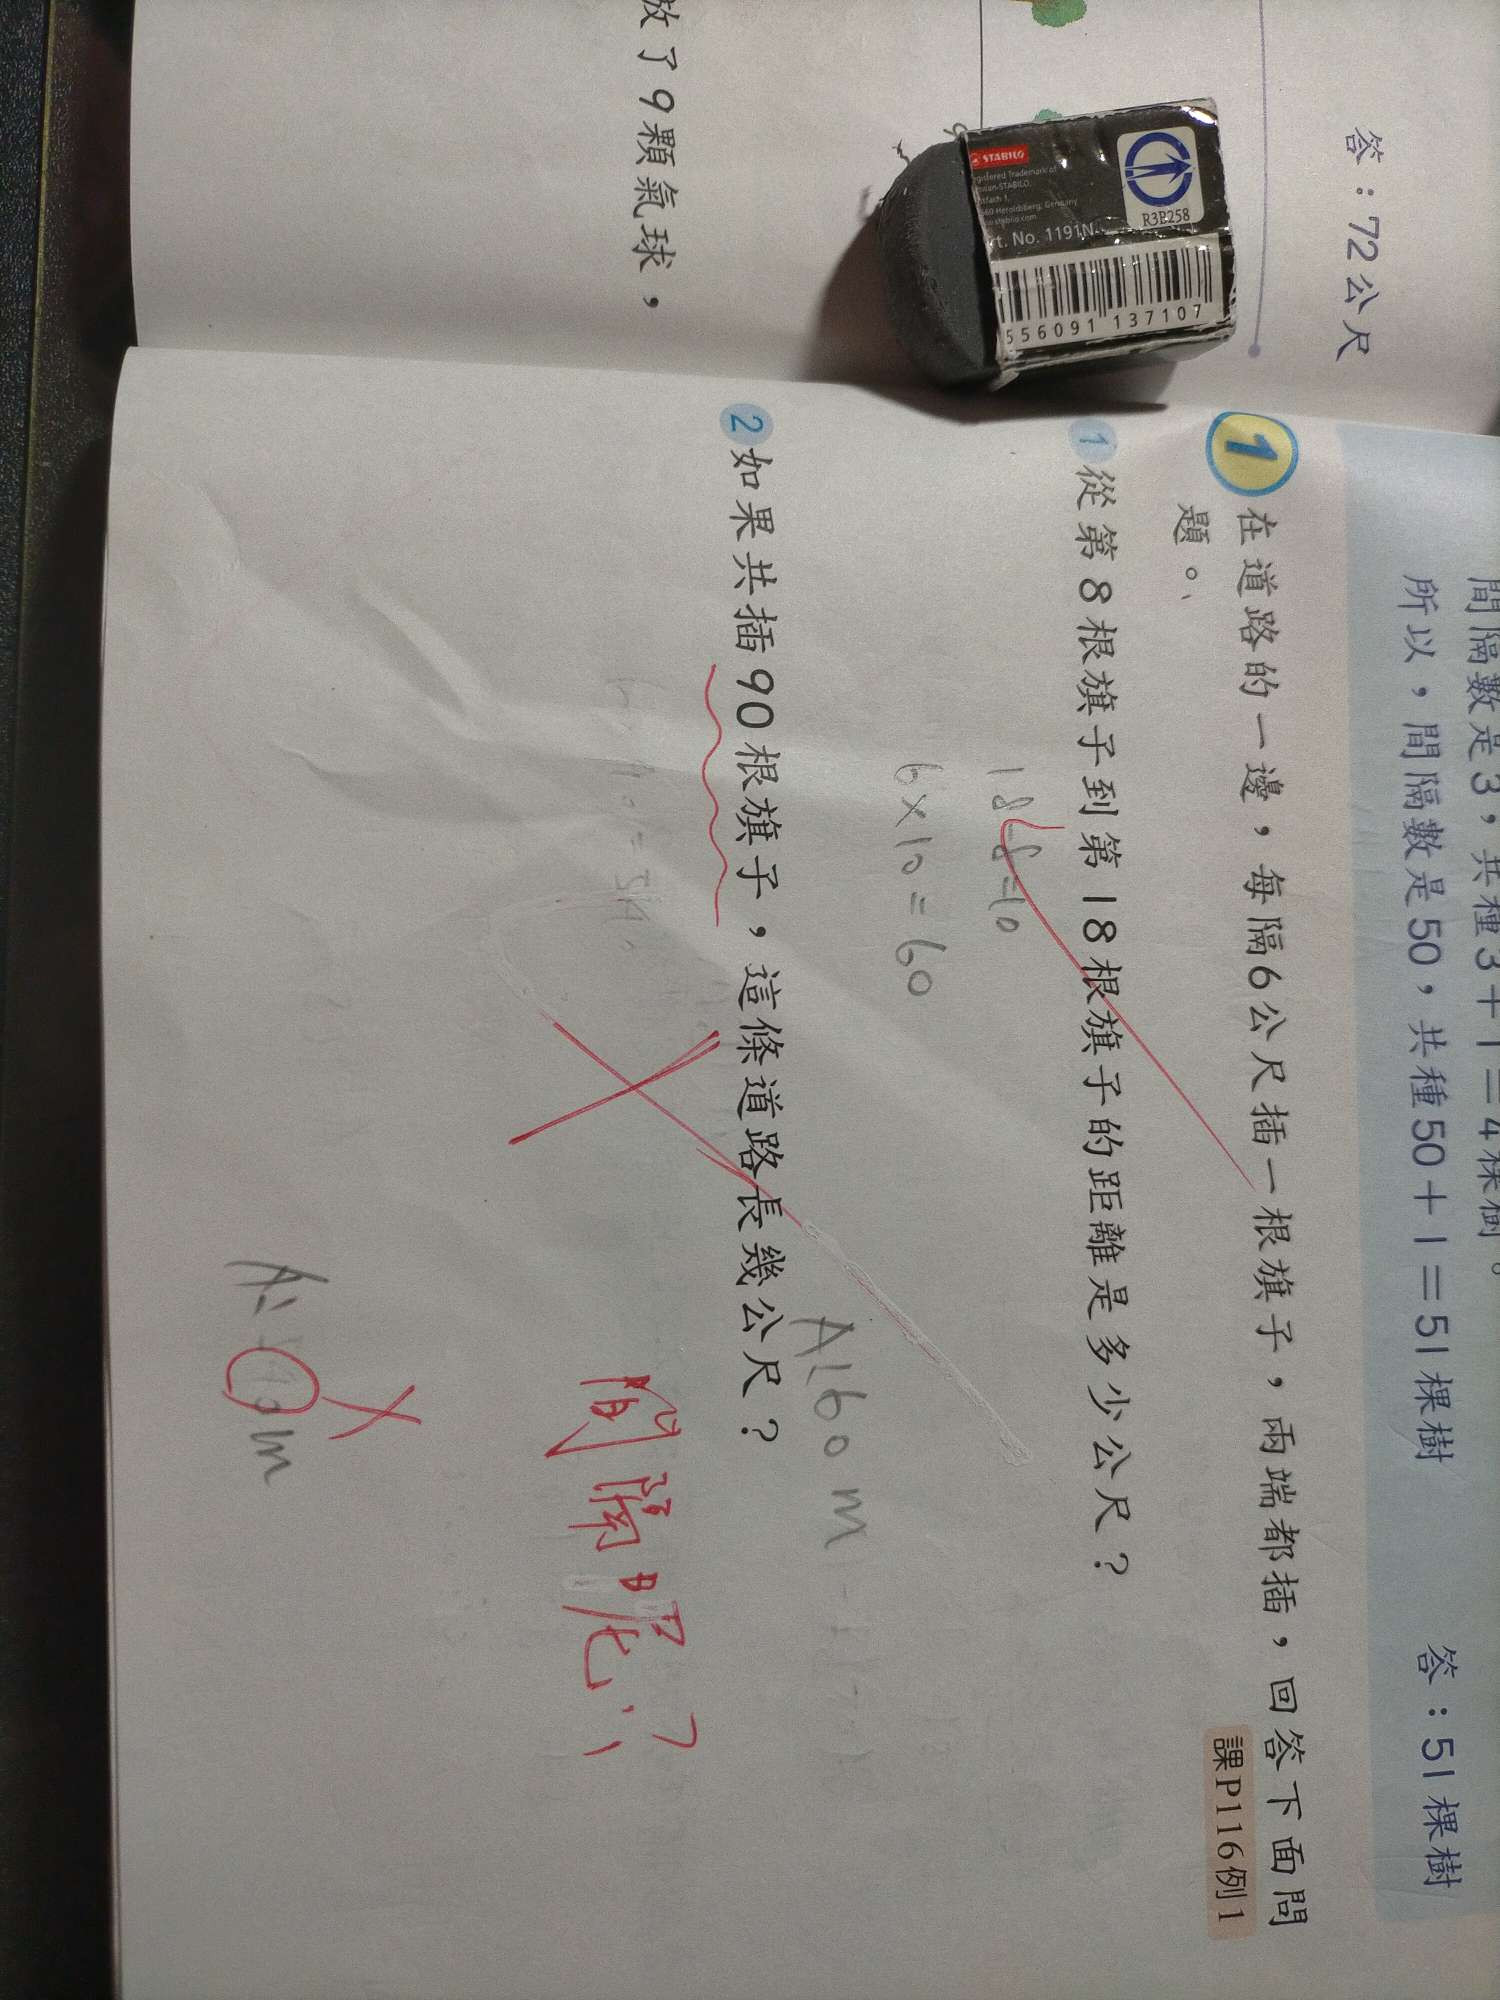 間隔數是3，共種3＋1＝4棵樹。
所以，間隔數是50，共種50＋1＝51棵樹
答：51棵樹
1 在道路的一邊，每隔6公尺插一根旗子，兩端都插，回答下面問
題。
課P116例1
1 從第8根旗子到第18根旗子的距離是多少公尺？
18-8=10
6×10=60
A:60m
2 如果共插90根旗子，這條道路長幾公尺？
間隔呢？
A:
m
答：72公尺
STABILO
R3B258
rt. No. 1191N
556091 137107
放了9顆氣球，